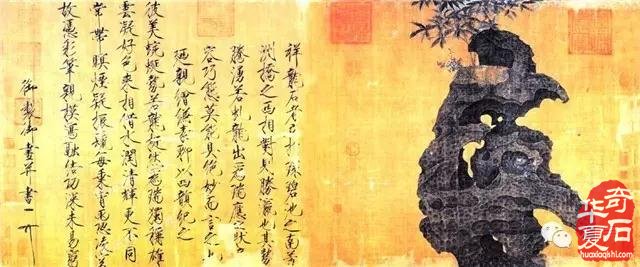 祥龍石者立於環碧池之南芳
洲橋之西相對則勝瀛也其勢
騰湧若虬龍出為瑞應之狀奇
容巧態莫能具絕妙而言之也
廼親繪縑素聊以四韻紀之
彼美蜿蜒勢若龍挺然為瑞獨稱雄
雲凝好色來相借水潤清輝更不同
常帶暝煙疑振鬣每乘宵雨恐凌空
故憑彩筆親模寫融結功深未易窮
御製御畫并書
华夏奇石
huaxiaqishi.com